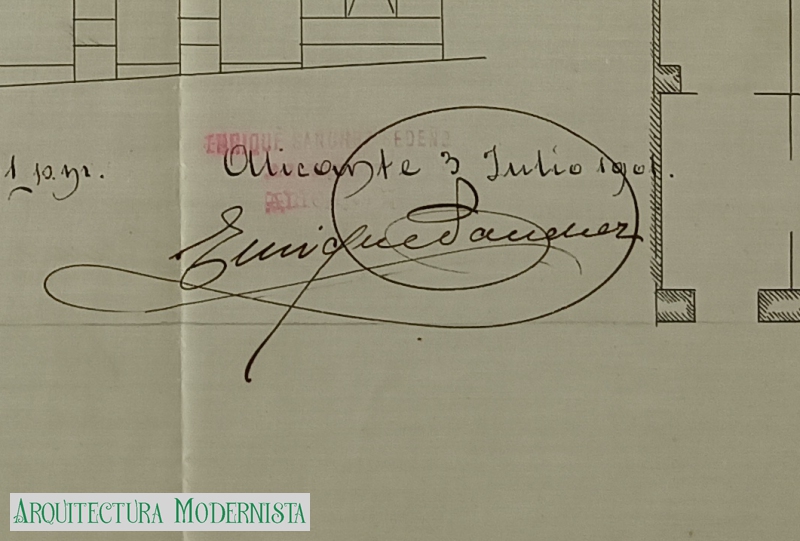 ENRIQUE SANCHEZ SEDEÑO
1 p. m.
Alicante 3 Julio 1901.
Enrique Sanchez
Arquitectura Modernista